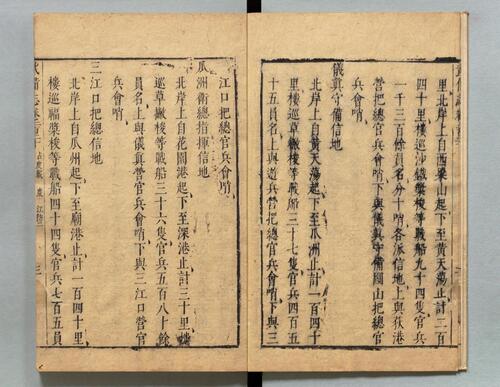 里北岸上自西梁山起下至黃天蕩止計二百
四十里樓巡沙鐵槳梭等戰船九十四隻官兵
一千三百餘員名分十哨各派信地上與荻港
營把總官兵會哨下與儀真守備圌山把總官
兵會哨
儀真守備信地
北岸上自黃天蕩起下至瓜洲止計一百四十
里樓巡草撇梭等戰船三十七隻官兵四百五
十五員名上與遊兵營把總官兵會哨下與三
江口把總官兵會哨
瓜洲衛總指揮信地
北岸上自花園港起下至深港止計三十里樓
巡草撇梭等戰船三十六隻官兵五百八十餘
員名上與儀真營官兵會哨下與三江口營官
兵會哨
三江口把總信地
北岸上自瓜州起下至廟港止計一百四十里
樓巡福槳梭等戰船四十四隻官兵七百五員